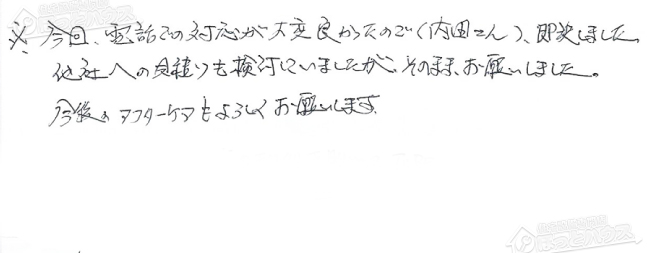 ※今回、電話での対応が大変良かったので(内田さん)、即決しました。
他社への見積りも検討していましたが、そのまま、お願いしました。
今後のアフターケアもよろしくお願いします。